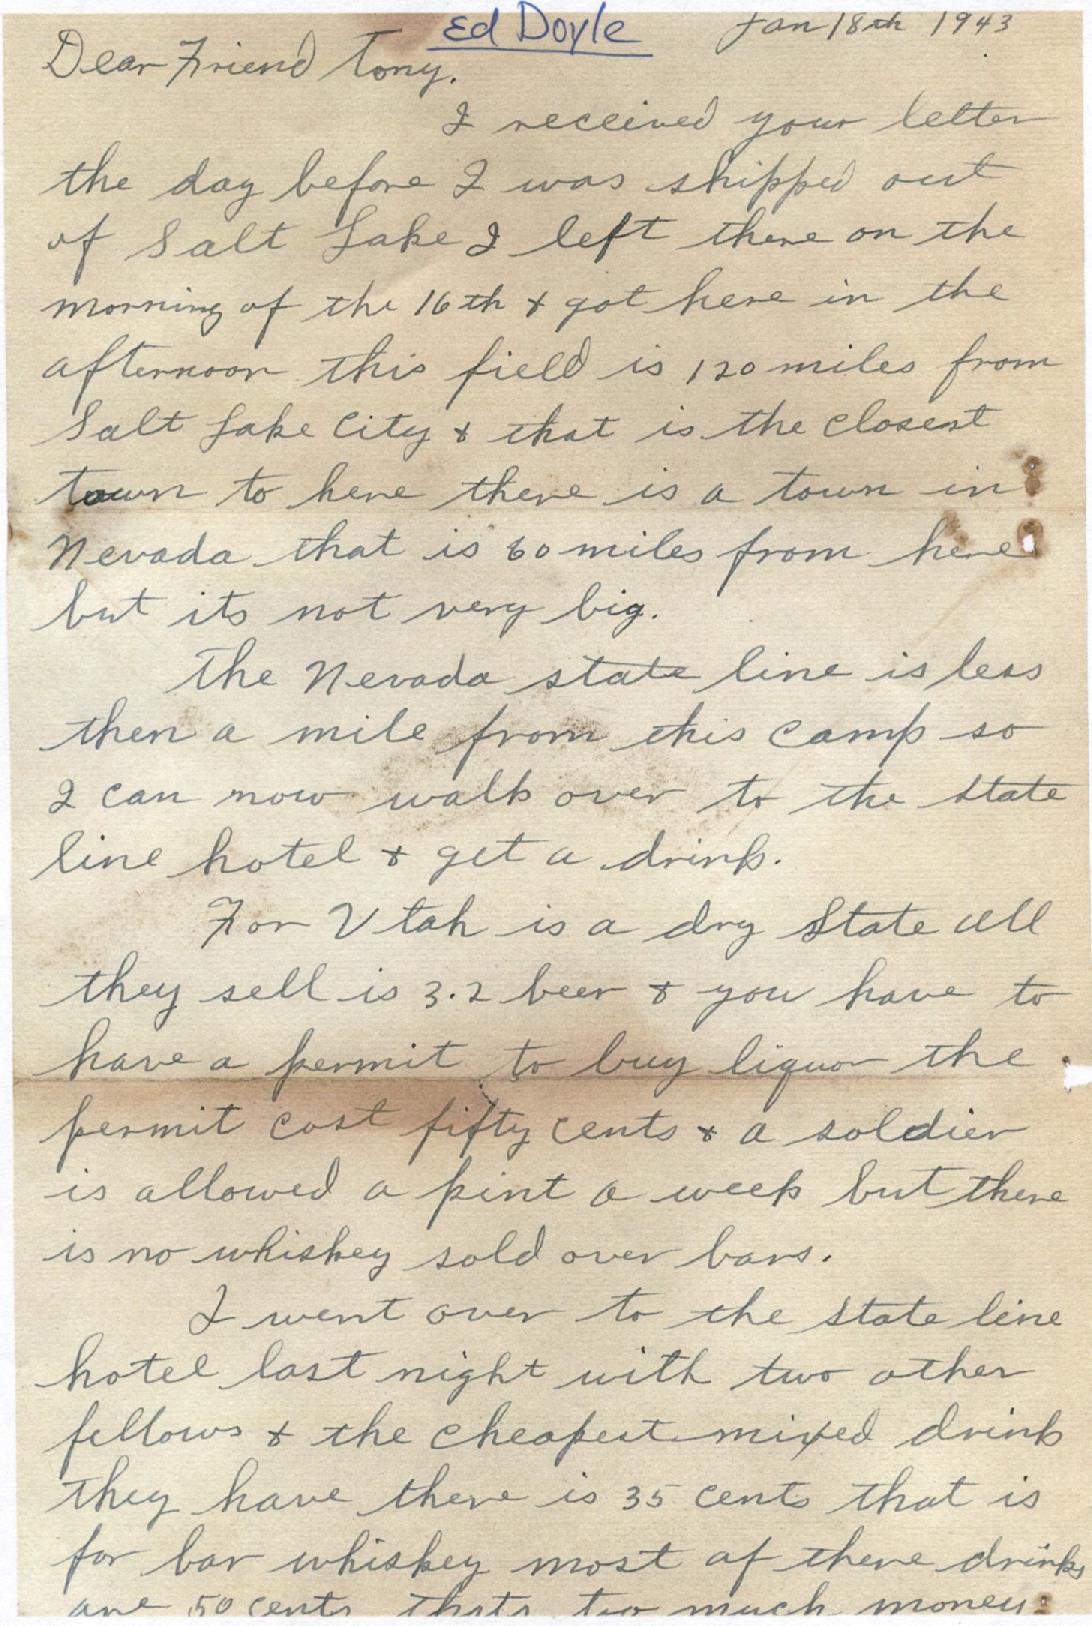 Ed Doyle
Jan 18th 1943
Dear Friend Tony.
I received your letter
the day before I was shipped out
of Salt Lake I left there on the
morning of the 16th & got here in the
afternoon this field is 120 miles from
Salt Lake City & that is the closest
town to here there is a town in
Nevada that is 60 miles from here
but its not very big.
The Nevada state line is less
then a mile from this camp so
I can now walk over to the state
line hotel & get a drink.
For Utah is a dry State all
they sell is 3.2 beer & you have to
have a permit to buy liquor the
permit cost fifty cents & a soldier
is allowed a pint a week but there
is no whiskey sold over bars.
I went over to the state line
hotel last night with two other
fellows & the cheapest mixed drink
they have there is 35 cents that is
for bar whiskey most of there drinks
are 50 cents thats too much money